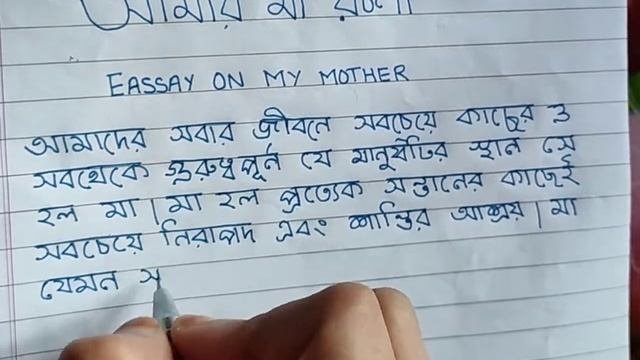 আমার মা রচনা
EASSAY ON MY MOTHER
আমাদের সবার জীবনে সবচেয়ে কাছের ও
সবথেকে গুরুত্বপূর্ন যে মানুষটির স্থান সে
হল মা। মা হল প্রত্যেক সন্তানের কাছেই
সবচেয়ে নিরাপদ এবং শান্তির আশ্রয়। মা
যেমন স